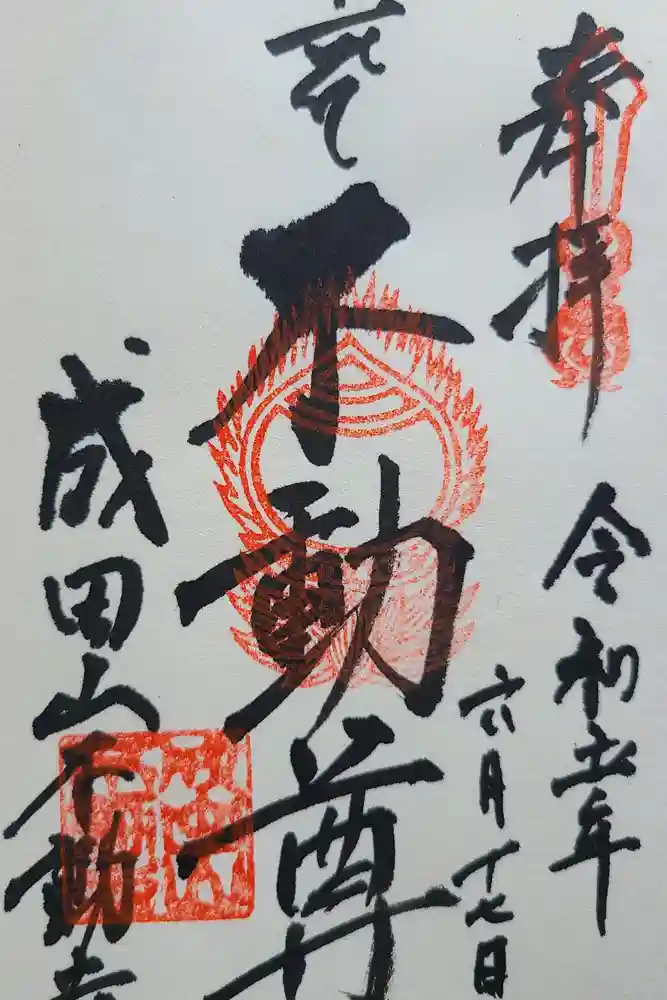 奉拝
令和五年
六月十七日
不動尊
成田山不動寺